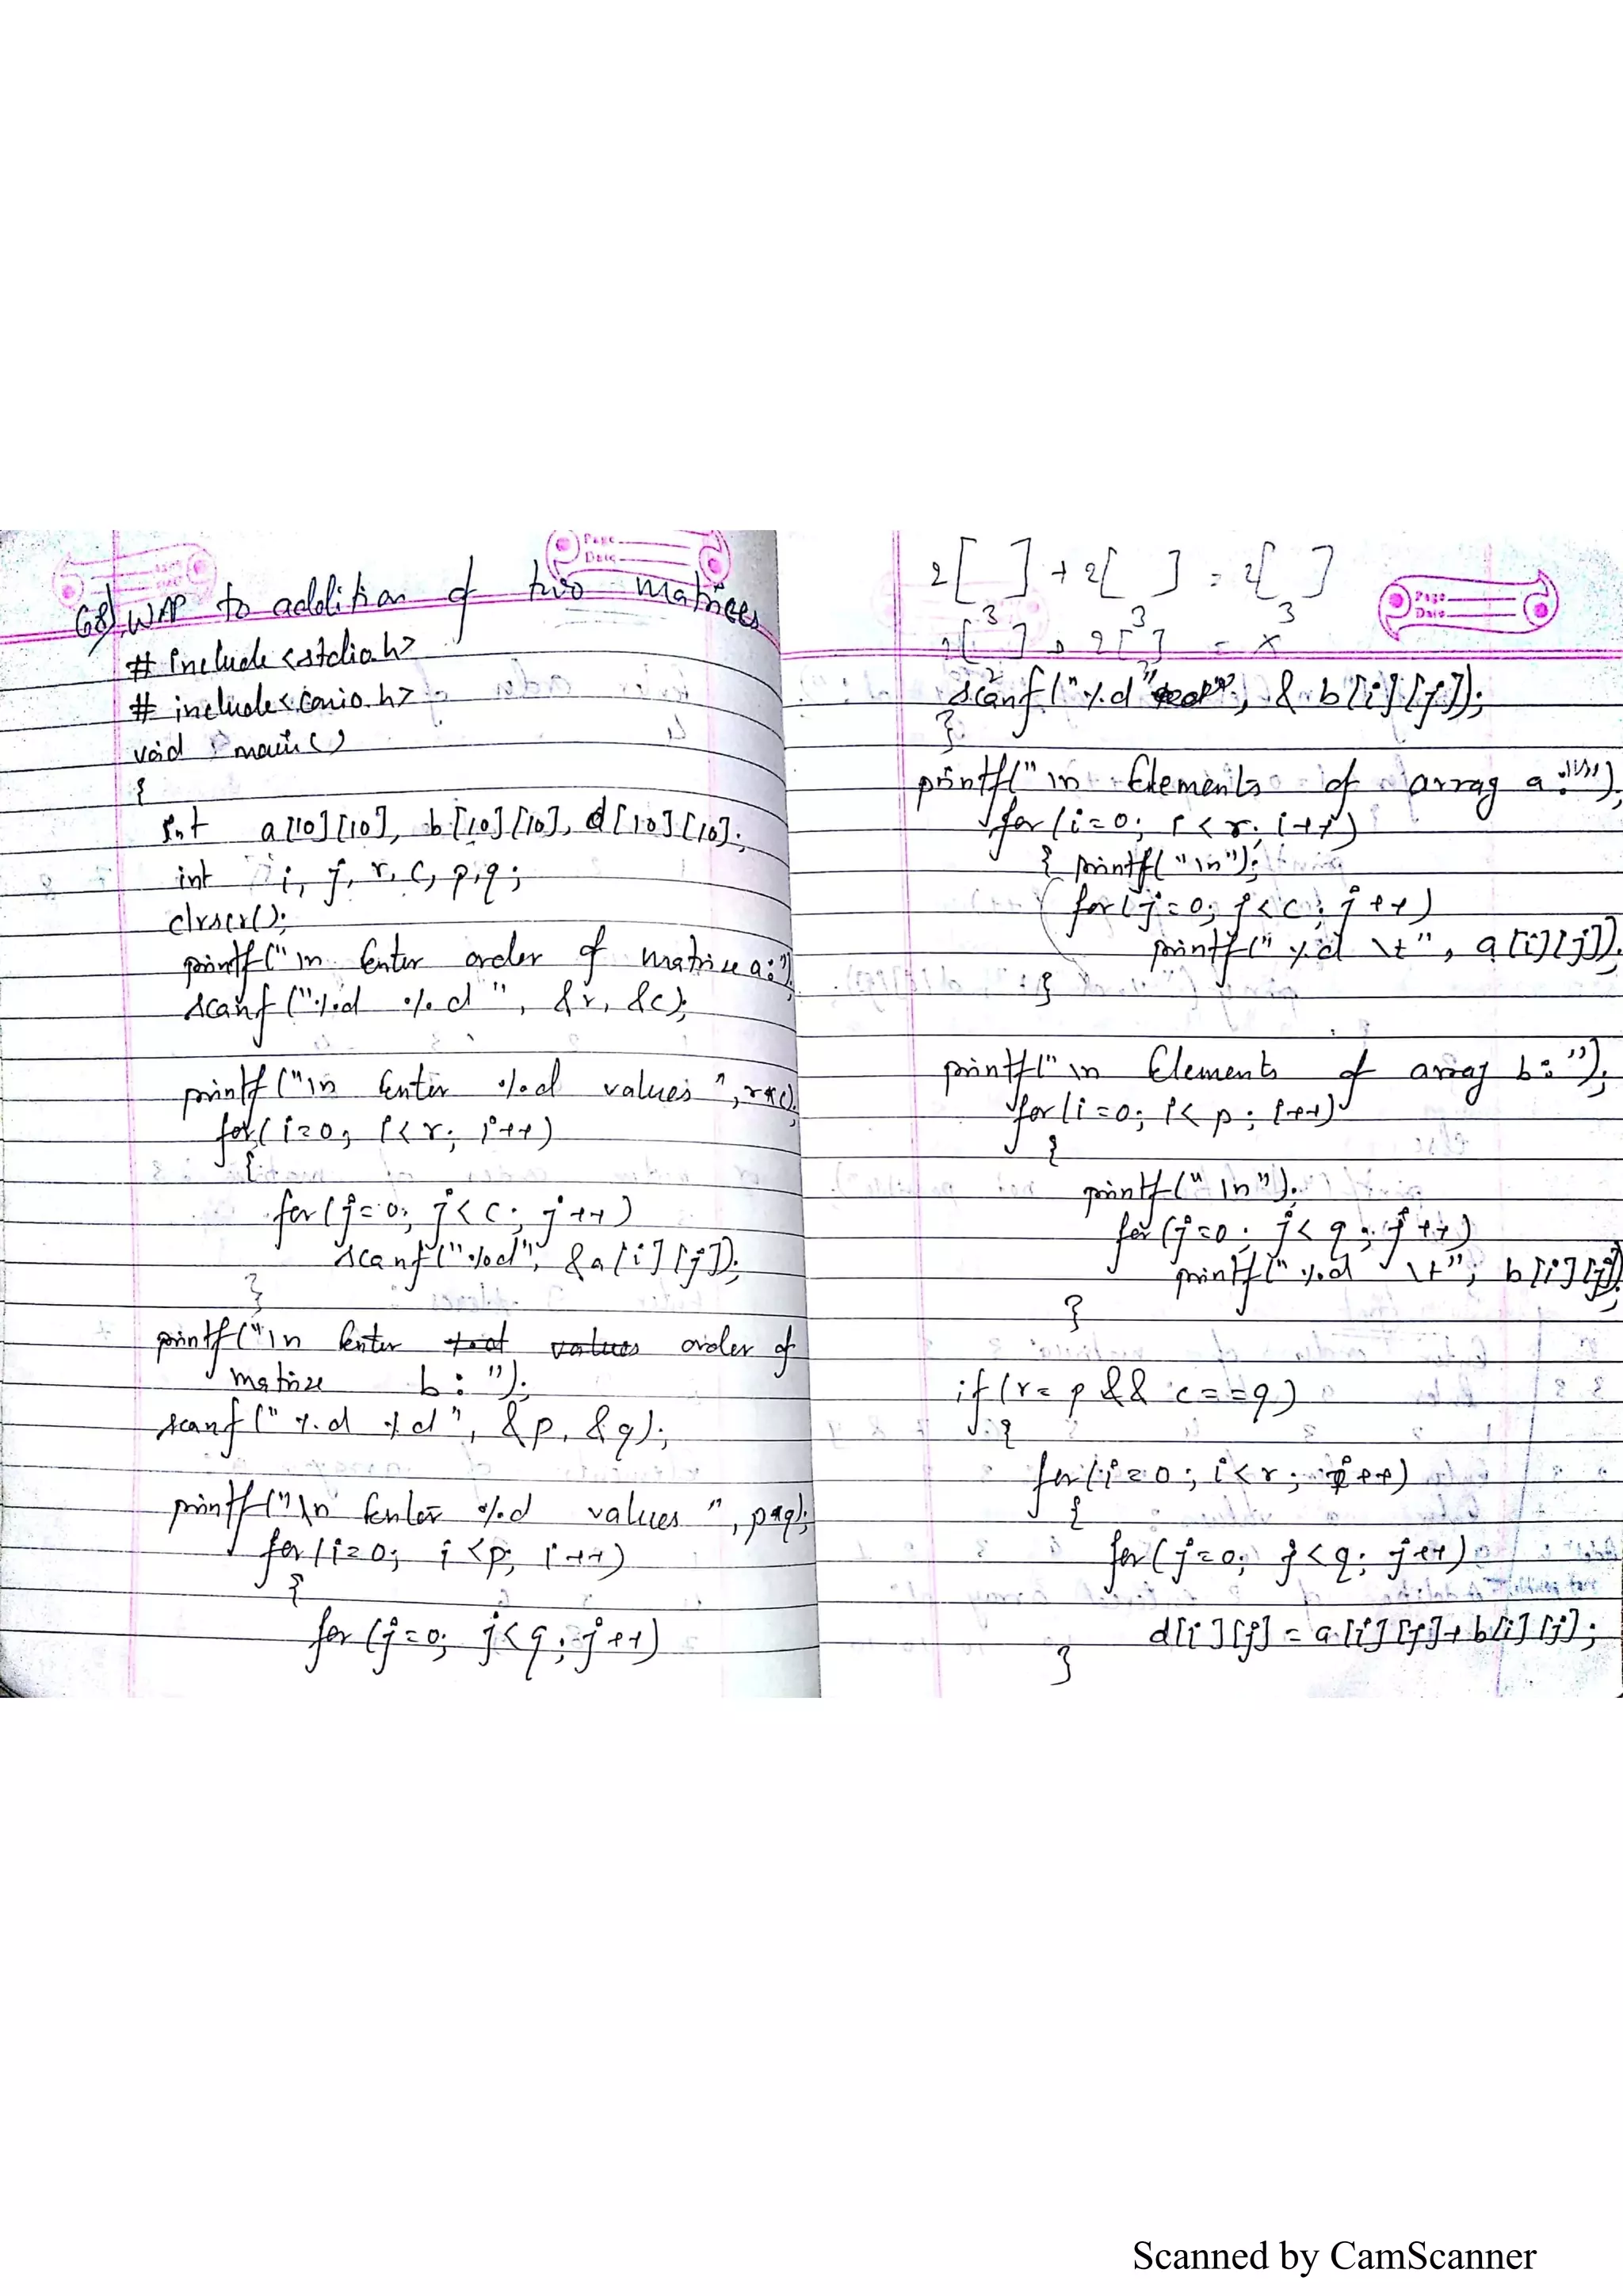 68). WAP to addition of two matrices
# include <stdio.h>
# include <conio.h>
void main()
{
int a[10][10], b[10][10], d[10][10];
int i, j, r, c, p, q;
clrscr();
printf("\n Enter order of matrix a:");
scanf("%d %d", &r, &c);
printf("\n Enter %d values", r*c);
for(i=0; i<r; i++)
{
for(j=0; j<c; j++)
scanf("%d", &a[i][j]);
}
printf("\n Enter order of
matrix b:");
scanf("%d %d", &p, &q);
printf("\n Enter %d values", p*q);
for(i=0; i<p; i++)
{
for(j=0; j<q; j++)
Page
Date
2[ ] + 2[ ] = 2[ ]
3 3 3
2[ ] + 2[ ] = x
2
scanf("%d", &b[i][j]);
}
printf("\n Elements of array a:");
for(i=0; i<r; i++)
{ printf("\n");
for(j=0; j<c; j++)
printf("%d \t", a[i][j]);
}
printf("\n Elements of array b:");
for(i=0; i<p; i++)
{
printf("\n");
for(j=0; j<q; j++)
printf("%d \t", b[i][j]);
}
if(r=p && c==q)
{
for(i=0; i<r; i++)
{
for(j=0; j<q; j++)
d[i][j] = a[i][j]+b[i][j];
}
Page
Date
Scanned by CamScanner